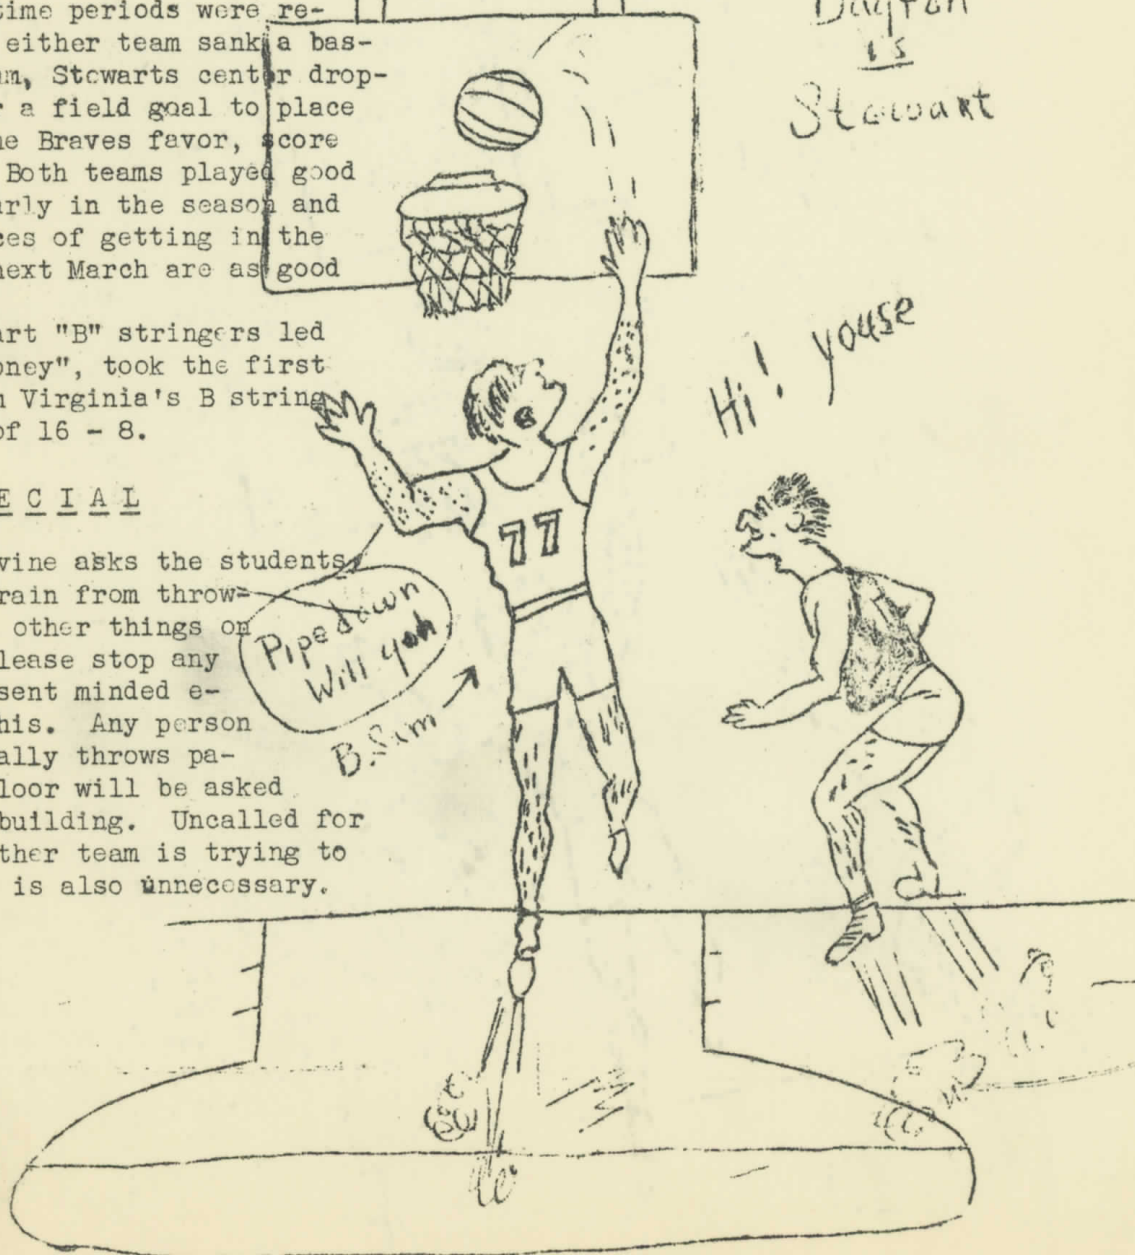 time periods were re-
either team sank a bas-
m, Stewarts center drop-
r a field goal to place
e Braves favor, score
Both teams played good
rly in the season and
ces of getting in the
next March are as good
art "B" stringers led
oney", took the first
n Virginia's B string
of 16 - 8.
E C I A L
vine asks the students
rain from throw-
other things on
lease stop any
sent minded e-
his. Any person
ally throws pa-
loor will be asked
building. Uncalled for
ther team is trying to
is also unnecessary.
Dayton
Stewart
Hi! youse
77
Pipe down
Will yoh
B. Sim